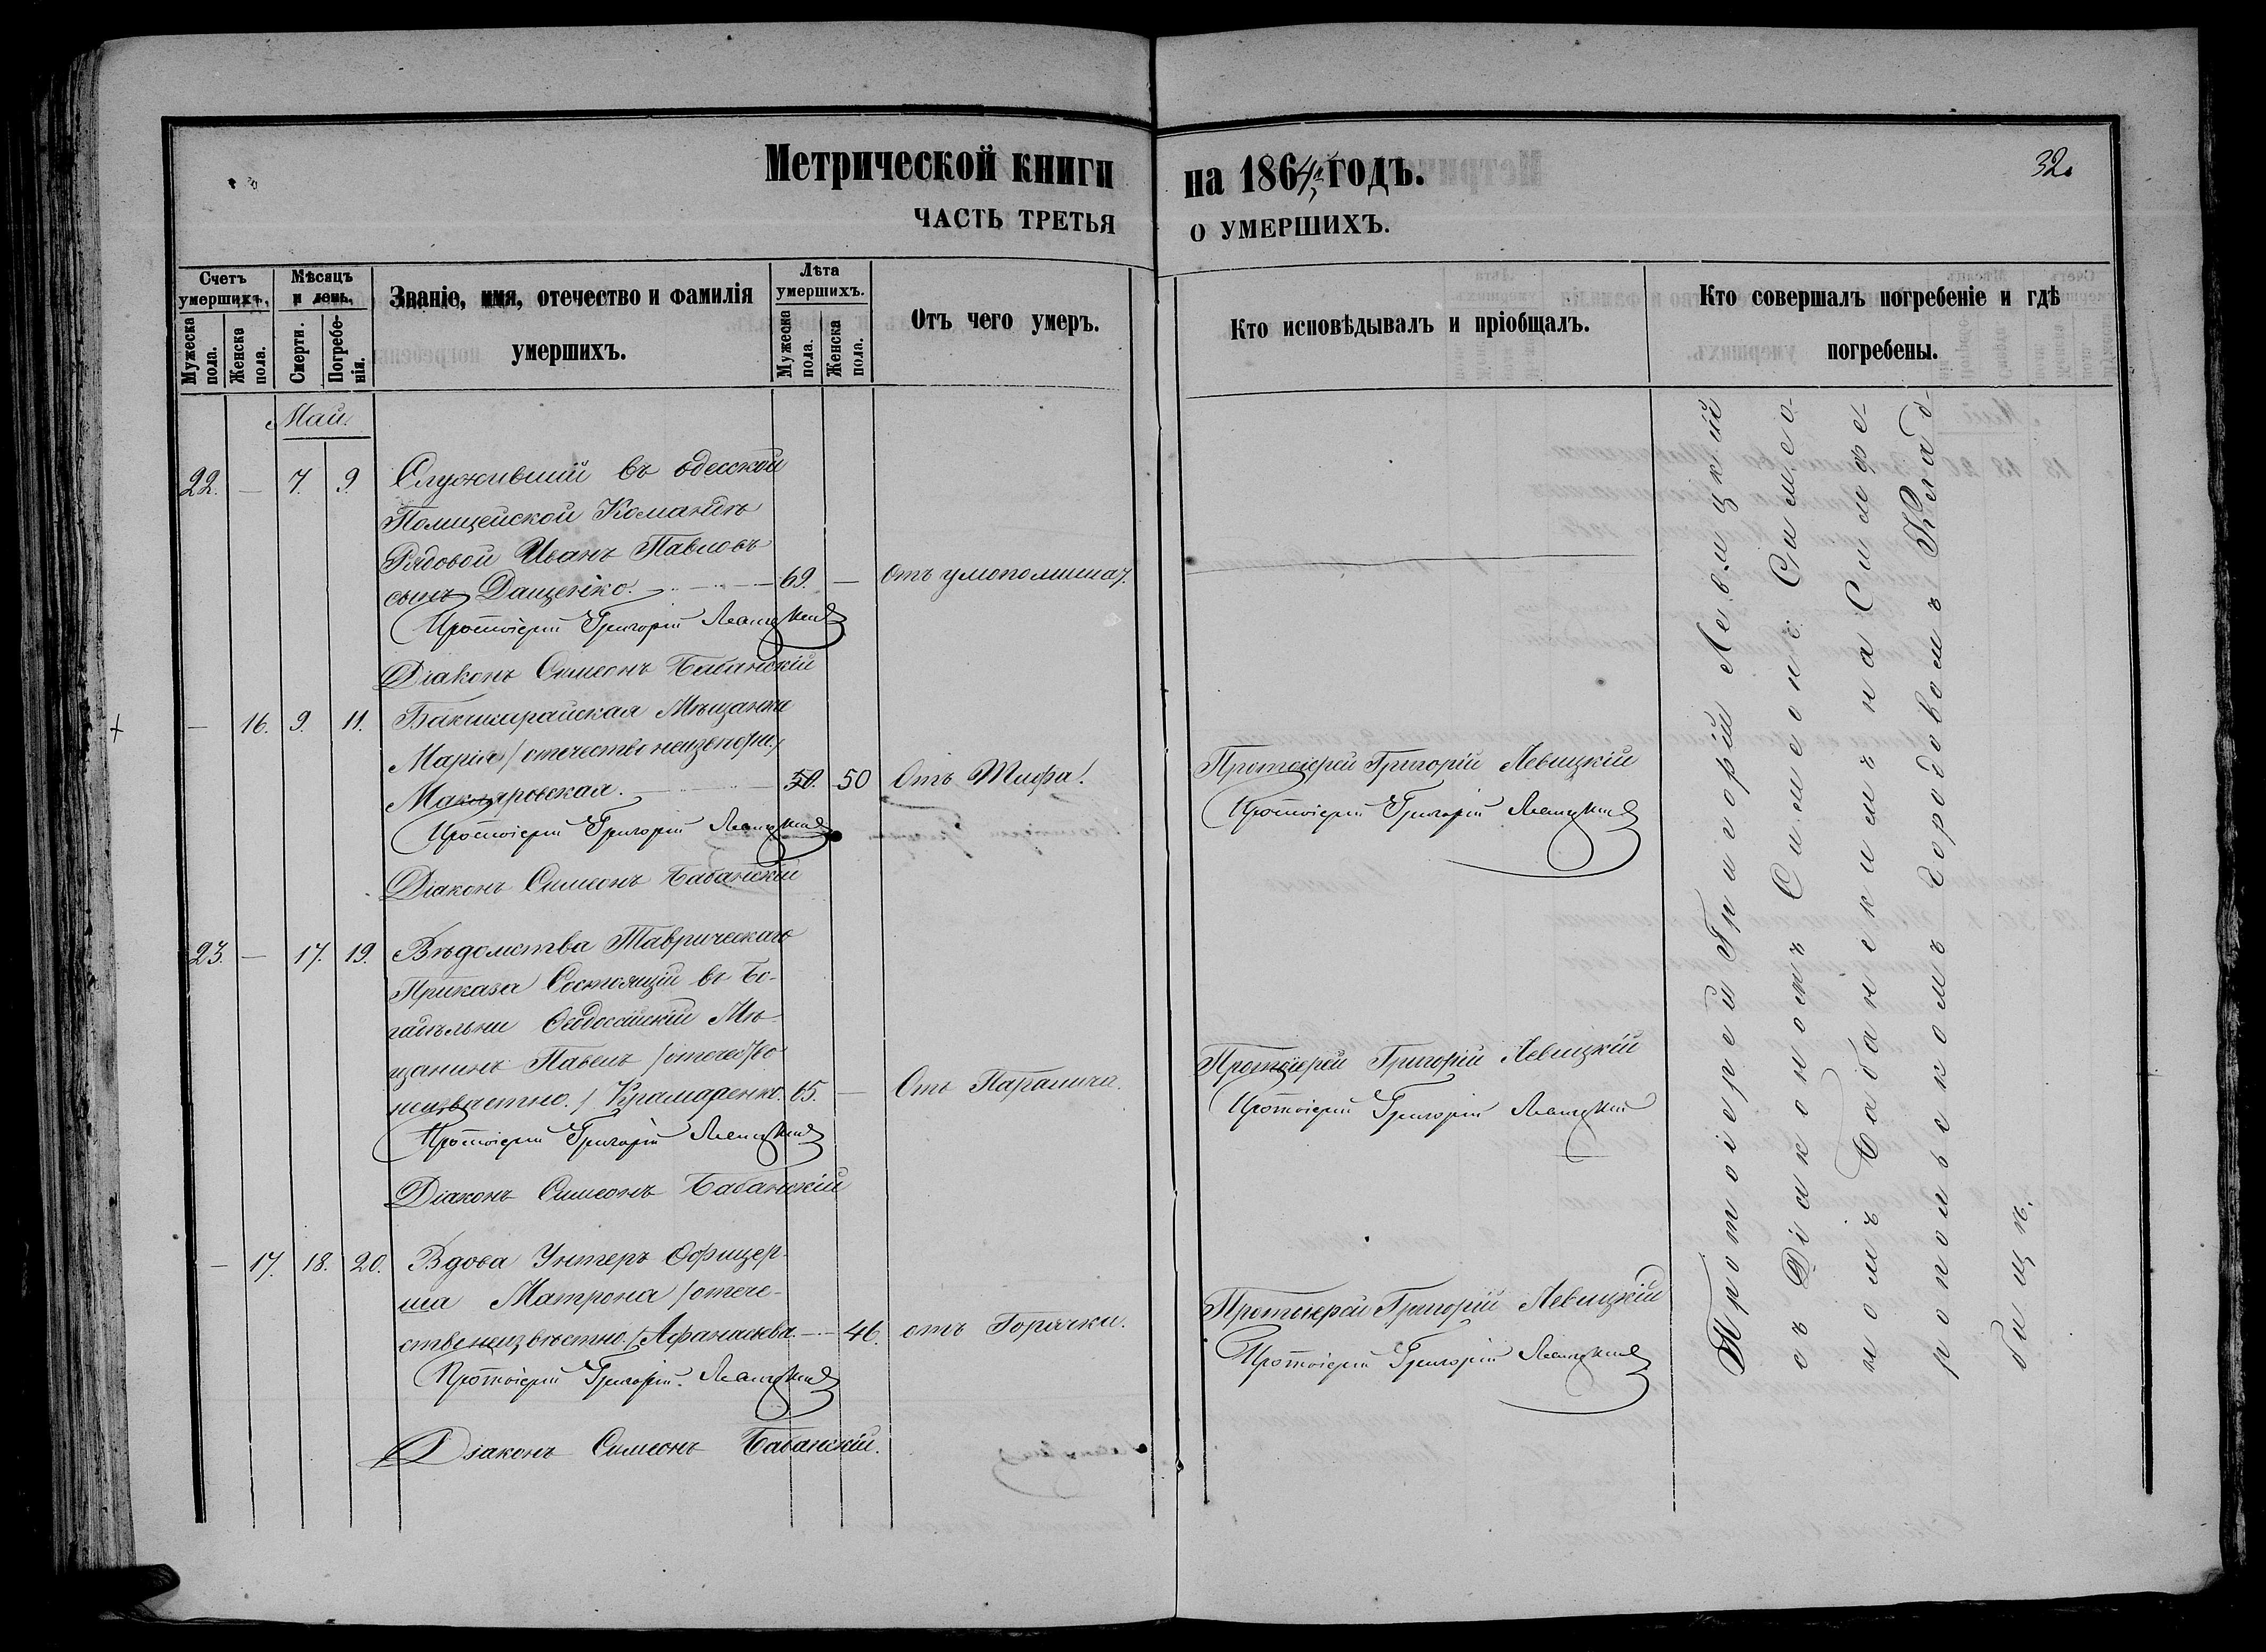 Метрической книги на 1864й годъ.
32.
ЧАСТЬ ТРЕТЬЯ О УМЕРШИХЪ.
Счетъ умершихъ.
Мужеска пола.
Женска пола.
Мѣсяцъ и день.
Смерти.
Погребенія.
Званіе, имя, отечество и фамилія умершихъ.
Лѣта умершихъ.
Мужеска пола.
Женска пола.
Отъ чего умеръ.
Кто исповѣдывалъ и пріобщалъ.
Кто совершалъ погребеніе и гдѣ погребены.
Май.
22. — 7. 9. Служившій въ одесской
Полицейской Командѣ
Рядовой Иванъ Павловъ
сынъ Дащенко. 69. — Отъ
Протоіерей Григорій Левицкій
Діаконъ Симеонъ Бабанскій
— 16. 9. 11. Бакчисарайская Мѣщанка
Марія /отечество
50. 50 Отъ Тифа.
Протоіерей Григорій Левицкій
Протоіерей Григорій Левицкій
Протоіерей Григорій Левицкій
Діаконъ Симеонъ Бабанскій
23. — 17. 19. Вѣдомства Таврическаго
Приказа Состоящій въ Бо-
гадѣльни Ѳеодосійскій Мѣ-
щанинъ Павелъ /отечество
неизвѣстно./ Крамаренко. 65. — Отъ Паралича.
Протоіерей Григорій Левицкій
Протоіерей Григорій Левицкій
Протоіерей Григорій Левицкій
Діаконъ Симеонъ Бабанскій
— 17. 18. 20. Вдова Унтеръ Офицер-
ша Матрона /отече-
ство неизвѣстно./ Афанасьева. — 46. отъ Горячки.
Протоіерей Григорій Левицкій
Протоіерей Григорій Левицкій
Протоіерей Григорій. Левицкій
Діаконъ Симеонъ Бабанскій.
Протоіерей Григорій Левицкій
съ Діакономъ Симеоно. Симео-
номъ Бабанскимъ на Симфе-
ропольскомъ Городовомъ Клад-
бищѣ.